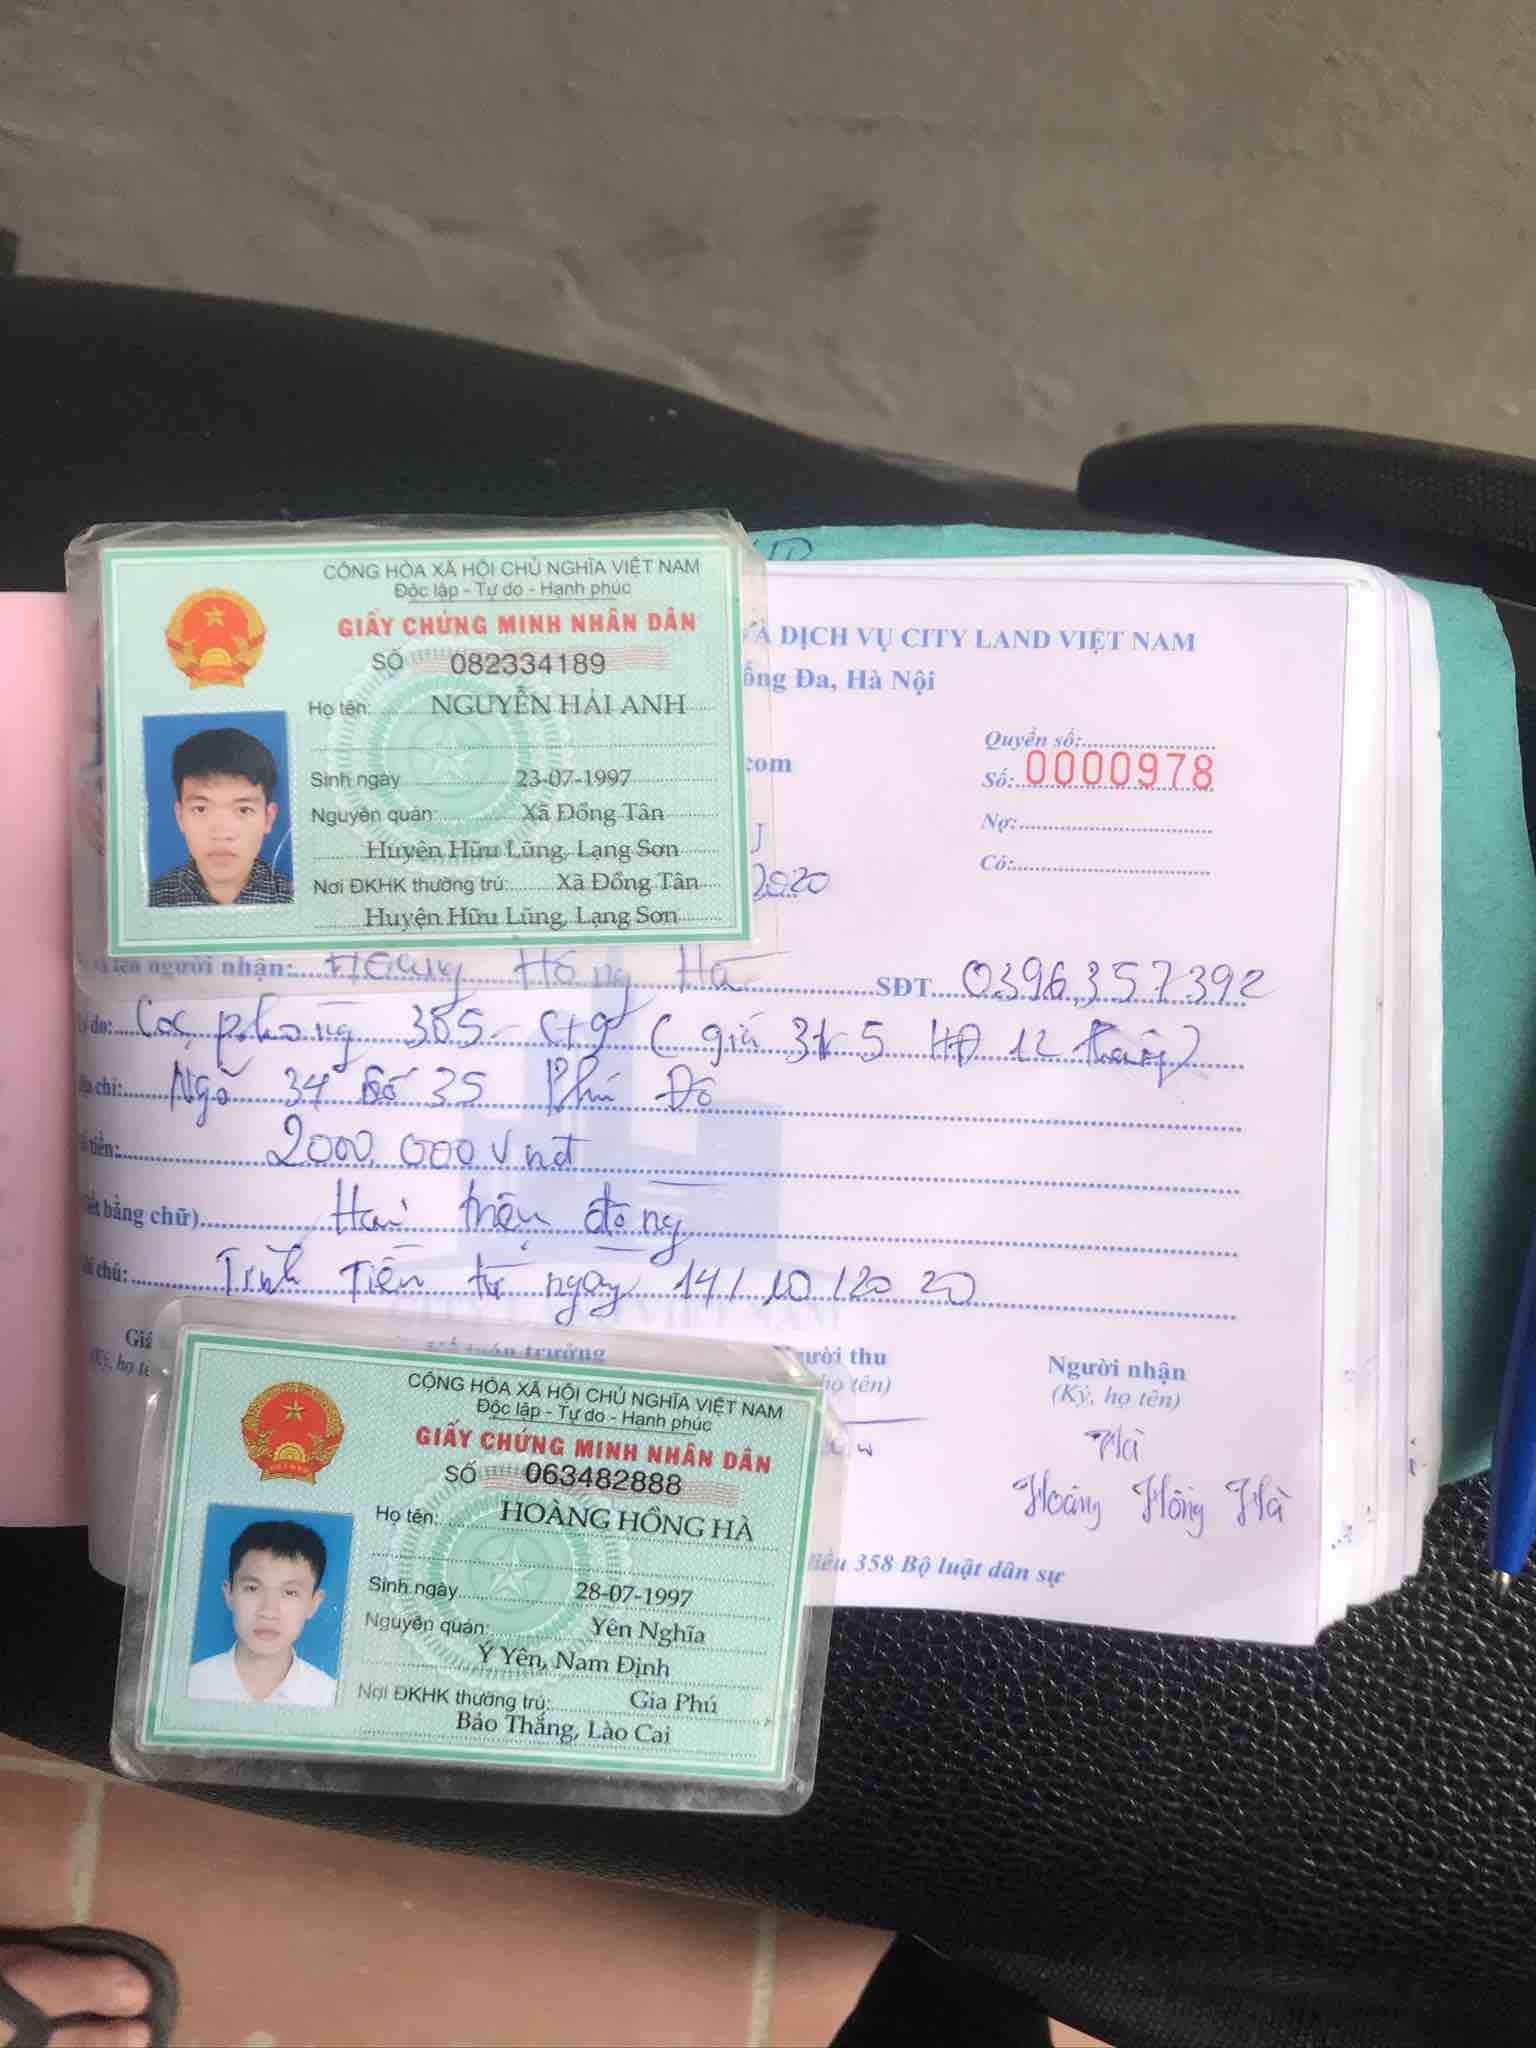 CỘNG HÒA XÃ HỘI CHỦ NGHĨA VIỆT NAM
Độc lập - Tự do - Hạnh phúc
GIẤY CHỨNG MINH NHÂN DÂN
SỐ 082334189
Họ tên: NGUYỄN HẢI ANH
Sinh ngày 23-07-1997
Nguyên quán: Xã Đồng Tân
Huyện Hữu Lũng, Lạng Sơn
Nơi ĐKHK thường trú: Xã Đồng Tân
Huyện Hữu Lũng, Lạng Sơn
VÀ DỊCH VỤ CITY LAND VIỆT NAM
Đống Đa, Hà Nội
com
Quyển số:
Số: 0000978
Nợ:
Có:
2020
tên người nhận: Hoàng Hồng Hà SĐT 0396,357392
do: Cọc phòng 305 (giá 3tr5 HĐ 12 tháng)
chỉ: Ngõ 34 số 35 Phú Đô
tiền: 2000.000 Vnđ
bằng chữ) Hai triệu đồng
chú: Tính Tiền từ ngày 14/10/2020
Giá
(Ký, họ tê
trưởng
Người thu
họ tên)
Người nhận
(Ký, họ tên)
Hà
Hoàng Hồng Hà
điều 358 Bộ luật dân sự
CỘNG HÒA XÃ HỘI CHỦ NGHĨA VIỆT NAM
Độc lập - Tự do - Hạnh phúc
GIẤY CHỨNG MINH NHÂN DÂN
SỐ 063482888
Họ tên: HOÀNG HỒNG HÀ
Sinh ngày 28-07-1997
Nguyên quán: Yên Nghĩa
Ý Yên, Nam Định
Nơi ĐKHK thường trú: Gia Phú
Bảo Thắng, Lào Cai